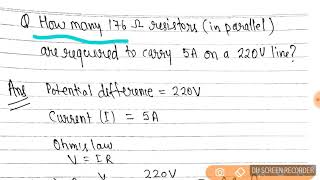 Q How many 176 Ω resistors (in parallel)
are required to carry 5A on a 220V line?
Ans Potential difference = 220V
Current (I) = 5A
Ohm's law
V = IR
V 220V
DU SCREEN RECORDER